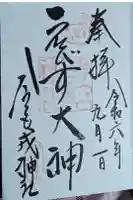 奉拝
令和六年
元月一日
ゑびす大神
石津戎神社